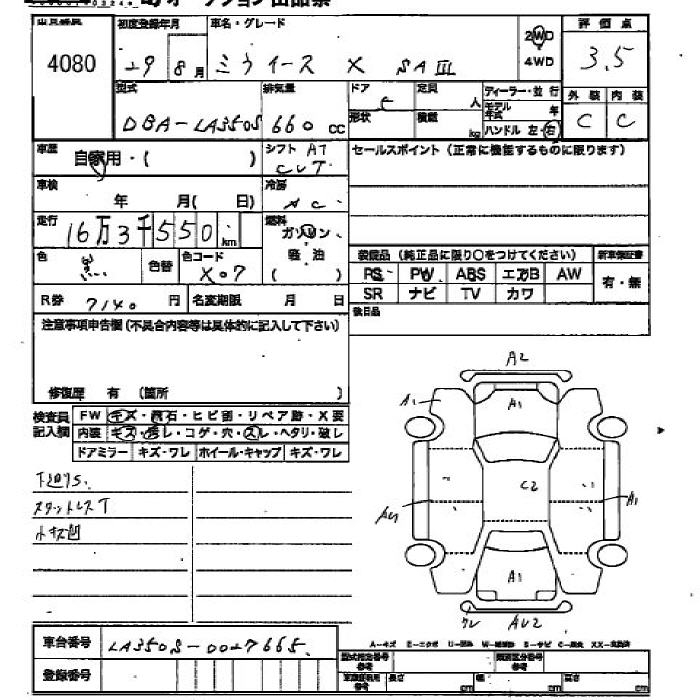 初度登録年月 車名・グレード 評価点
4080 29 8月 ミライース X SAⅢ 2WD 4WD 3.5
型式 排気量 ドア 定員 ディーラー・並行 外装 内装
DBA-LA350S 660 cc 5 人 モデル年式 年 C C
形状 積載 kg ハンドル 左・右
車歴 自家用・( ) シフト AT CVT セールスポイント (正常に機能するものに限ります)
車検 年 月( 日) 冷房 AC
走行 16万3千550 km 燃料 ガソリン 軽油 ( )
色 黒 色替 色コード X07
装備品 (純正品に限り○をつけてください) 新車保証書
PS PW ABS エアB AW 有・無
SR ナビ TV カワ
R券 7140 円 名変期限 月 日 後日品
注意事項申告欄 (不具合内容等は具体的に記入して下さい)
修復歴 有 (箇所 )
検査員記入欄 FW キズ・飛石・ヒビ割・リペア跡・X要
内装 キズ・汚レ・コゲ・穴・スレ・ヘタリ・破レ
ドアミラー キズ・ワレ ホイール・キャップ キズ・ワレ
下廻りS.
スタットレスT
小キズ凹
A2
A1
A1
C2
A1
A1
AU2
車台番号 LA350S-0027665
登録番号
A-キズ E-エクボ U-凹み
型式指定番号 参考 類別区分番号 参考
長さ cm 幅 cm 高さ cm